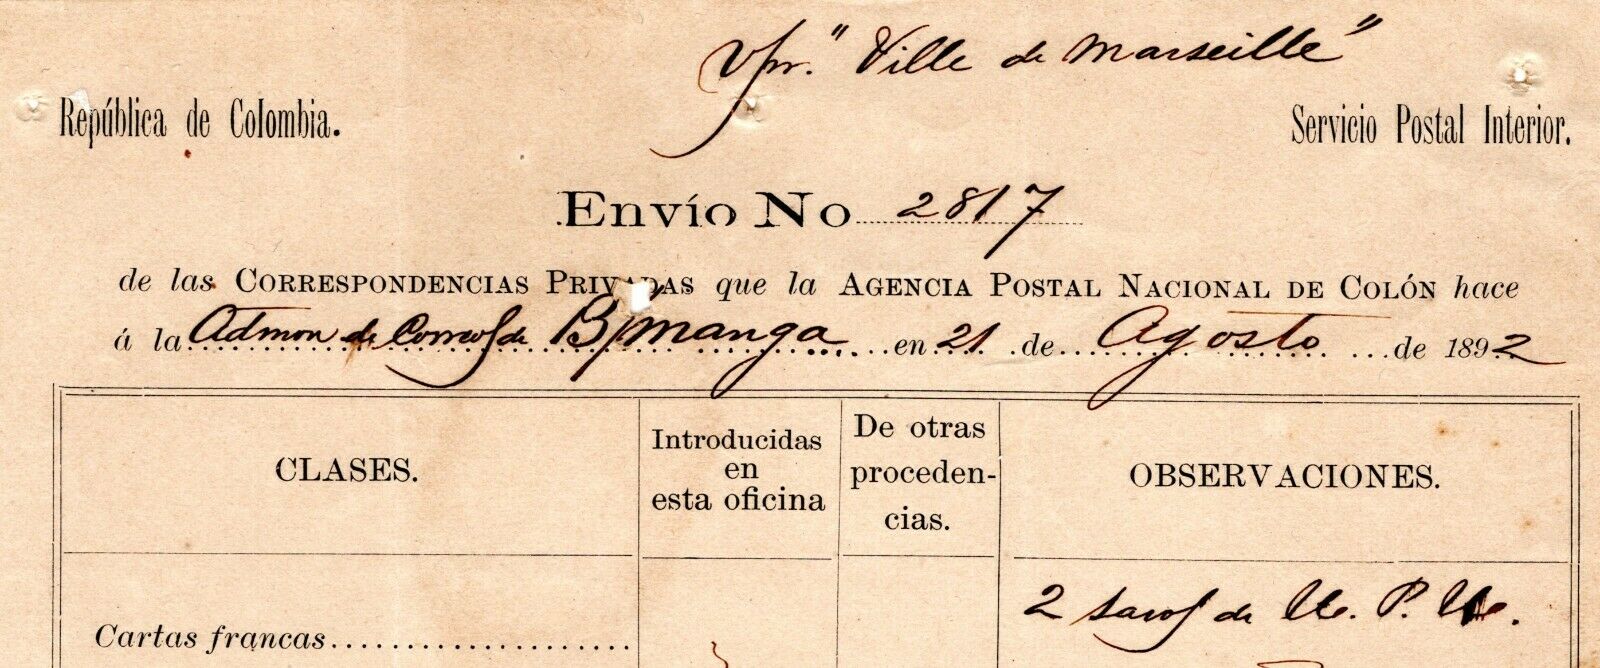 Vpr. "Ville de Marseille"
República de Colombia.
Servicio Postal Interior.
Envío No 2817
de las CORRESPONDENCIAS PRIVADAS que la AGENCIA POSTAL NACIONAL DE COLÓN hace
á la Admon de Correos de B/manga en 21 de Agosto de 1892
CLASES.
Introducidas
en
esta oficina
De otras
proceden-
cias.
OBSERVACIONES.
2 sacos de U. P. U.
Cartas francas